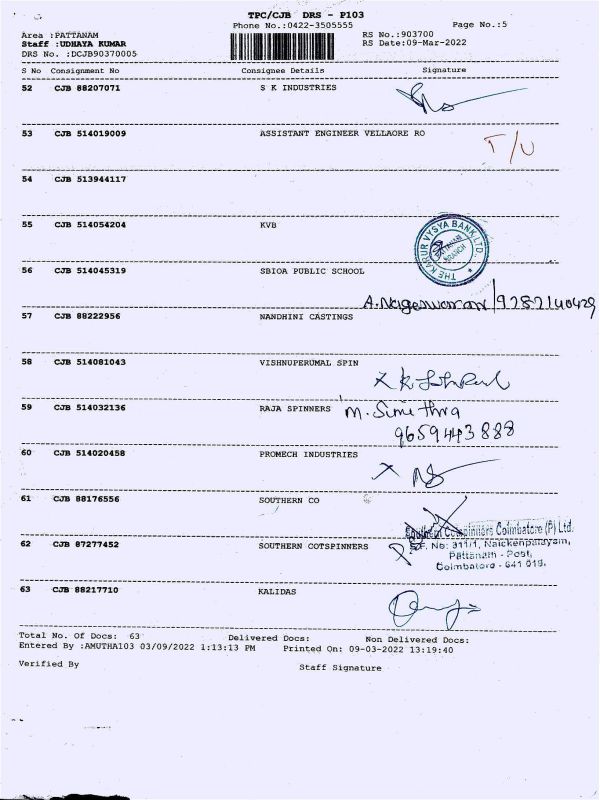 TPC/CJB DRS - P103
Phone No.:0422-3505555 Page No.:5
Area :PATTANAM RS No.:903700
Staff :UDHAYA KUMAR RS Date:09-Mar-2022
DRS No. :DCJB90370005
S No Consignment No Consignee Details Signature
52 CJB 88207071 S K INDUSTRIES
53 CJB 514019009 ASSISTANT ENGINEER VELLAORE RO
T/U
54 CJB 513944117
55 CJB 514054204 KVB
THE KARUR VYSYA BANK LTD.
PATTANAM
BRANCH
56 CJB 514045319 SBIOA PUBLIC SCHOOL
A. Nageswaran/9787140429
57 CJB 88222956 NANDHINI CASTINGS
58 CJB 514081043 VISHNUPERUMAL SPIN
59 CJB 514032136 RAJA SPINNERS M. Sumithra
9659443888
60 CJB 514020458 PROMECH INDUSTRIES
61 CJB 88176556 SOUTHERN CO
Southern Cotspinners Coimbatore (P) Ltd.
62 CJB 87277452 SOUTHERN COTSPINNERS S.F. No: 311/1, Naickenpalayam,
Pattanam - Post,
Coimbatore - 641 016.
63 CJB 88217710 KALIDAS
Total No. Of Docs: 63 Delivered Docs: Non Delivered Docs:
Entered By :AMUTHA103 03/09/2022 1:13:13 PM Printed On: 09-03-2022 13:19:40
Verified By Staff Signature